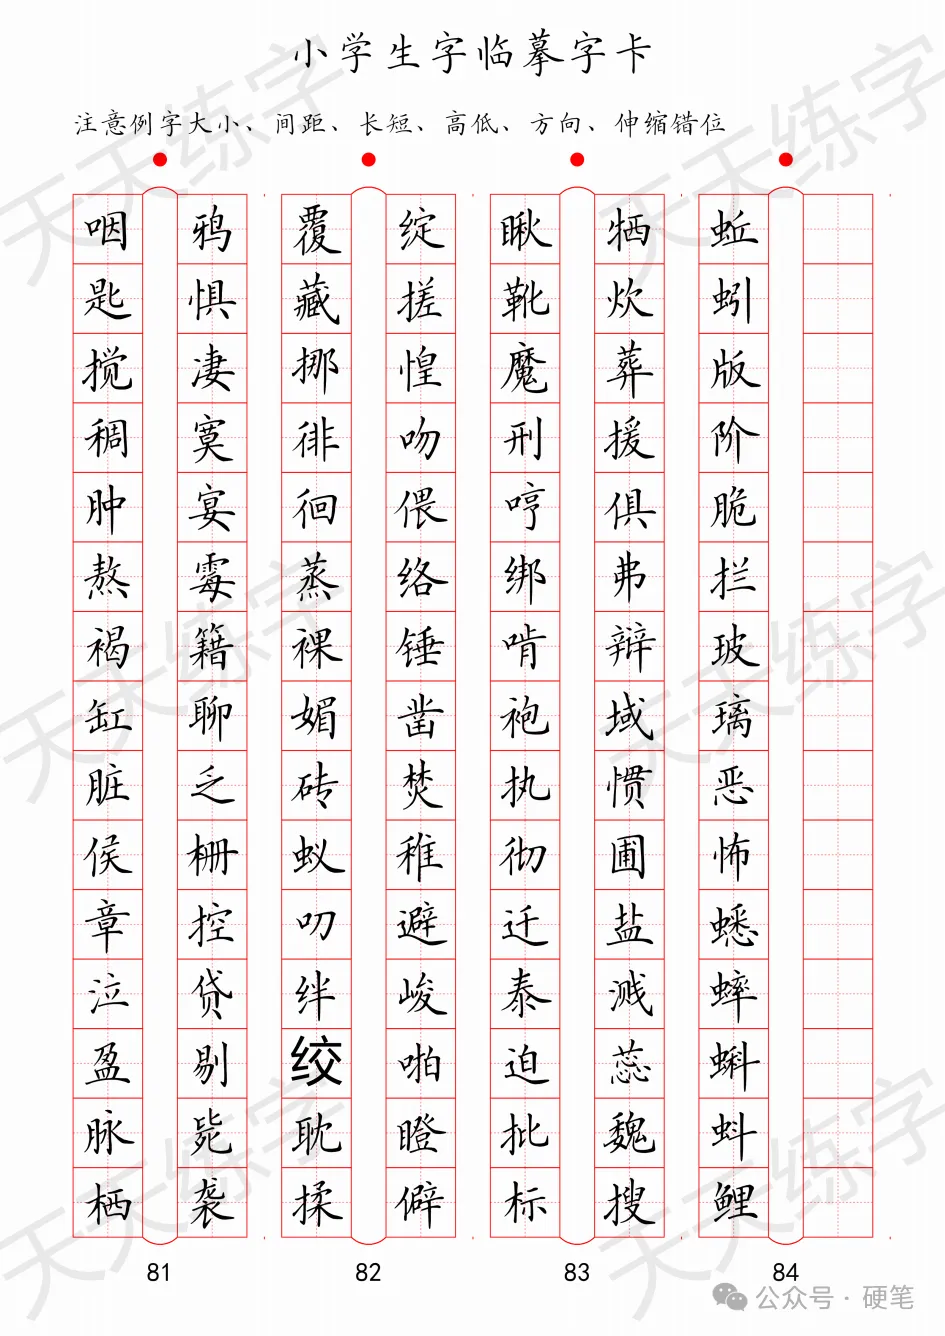 小学生字临摹字卡
注意例字大小、间距、长短、高低、方向、伸缩错位
咽 鸦 覆 绽 瞅 牺 蚯
匙 惧 藏 搓 靴 炊 蚓
搅 凄 挪 惶 魔 葬 版
稠 寞 徘 吻 刑 援 阶
肿 宴 徊 偎 哼 俱 脆
熬 霉 蒸 络 绑 弗 拦
褐 籍 裸 锤 啃 辩 玻
缸 聊 媚 凿 袍 域 璃
脏 乏 砖 焚 执 惯 恶
侯 栅 蚁 稚 彻 圃 怖
章 控 叨 避 迁 盐 蟋
泣 贷 绊 峻 泰 溅 蟀
盈 剔 绞 啪 迫 蕊 蝌
脉 毙 耽 瞪 批 魏 蚪
栖 袭 揉 僻 标 搜 鲤
81 82 83 84
公众号·硬笔
天天练字
天天练字
天天练字
天天练字
天天练字
天天练字